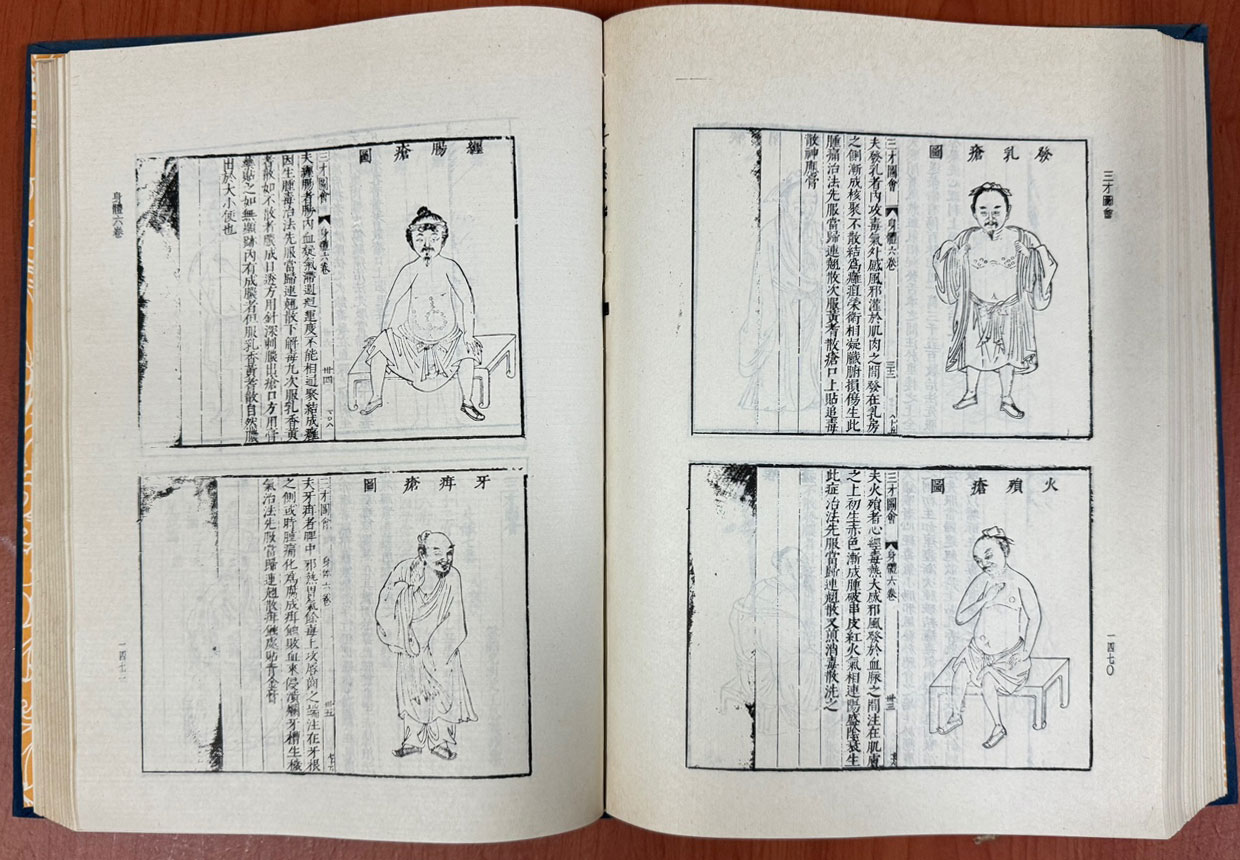 三才圖會
一四七〇
發乳瘡圖
三才圖會 身體六卷
夫發乳者內攻毒氣外感風邪灌於肌肉之間發在乳房
之側漸成核聚不散結為癰疽榮衛相凝臟腑損傷生此
腫痛治法先服當歸連翹散次服黃芪散瘡口上貼追毒
散神應膏
火殞瘡圖
三才圖會 身體六卷 卅三
夫火殞者心經毒熱大盛邪風發於血脉之間注在肌膚
之上初生赤色漸成腫破串皮紅火氣相連陽盛陰衰生
此症治法先服當歸連翹散又煎消毒散洗之
身體六卷
纏腸瘡圖
三才圖會 身體六卷 卅四
夫纏腸者腸內血凝氣滯運度不能相通聚結成癰
因生腫毒治法先服當歸連翹散下解毒丸次服乳香黃
芪散如不散者膿成日逐方用針深刺膿出瘡口方用膏
藥貼之如無顯跡內有成膿者但服乳香黃芪散自然膿
出於大小便也
牙疳瘡圖
三才圖會 身体六卷 卅五
夫牙疳者脾中邪熱胃氣餘毒上攻唇齒之端注在牙根
之側或時腫痛化為膿成疳蝕敗血來侵潰爛牙槽生穢
氣治法先服當歸連翹散疳蝕處貼青金膏